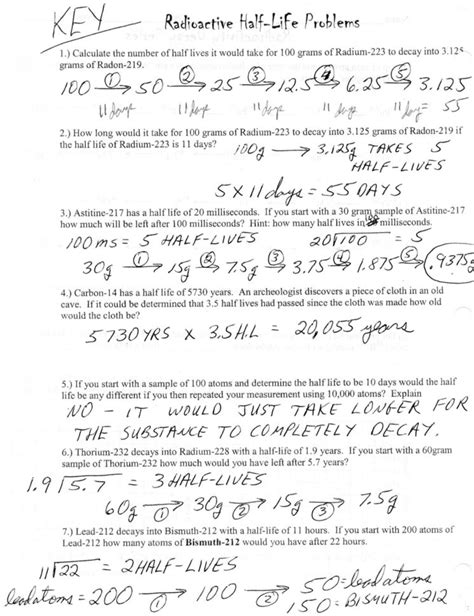 KEY Radioactive Half-Life Problems
1.) Calculate the number of half lives it would take for 100 grams of Radium-223 to decay into 3.125
grams of Radon-219.
① ② ③ ④ ⑤
100 → 50 → 25 → 12.5 → 6.25 → 3.125
11 days 11 days 11 days 11 days 11 days = 55
2.) How long would it take for 100 grams of Radium-223 to decay into 3.125 grams of Radon-219 if
the half life of Radium-223 is 11 days? 100g → 3.125g TAKES 5
HALF-LIVES
5 X 11 days = 55 DAYS
3.) Astitine-217 has a half life of 20 milliseconds. If you start with a 30 gram sample of Astitine-217
how much will be left after 100 milliseconds? Hint: how many half lives in 100 milliseconds.
100 ms = 5 HALF-LIVES 20√100 = 5
30g ① → 15g ② → 7.5g ③ → 3.75 ④ → 1.875 ⑤ → .9375g
4.) Carbon-14 has a half life of 5730 years. An archeologist discovers a piece of cloth in an old
cave. If it could be determined that 3.5 half lives had passed since the cloth was made how old
would the cloth be?
5730 YRS X 3.5 H.L = 20,055 years
5.) If you start with a sample of 100 atoms and determine the half life to be 10 days would the half
life be any different if you then repeated your measurement using 10,000 atoms? Explain
NO - IT WOULD JUST TAKE LONGER FOR
THE SUBSTANCE TO COMPLETELY DECAY.
6.) Thorium-232 decays into Radium-228 with a half-life of 1.9 years. If you start with a 60gram
sample of Thorium-232 how much would you have left after 5.7 years?
1.9√5.7 = 3 HALF-LIVES
60g ① → 30g ② → 15g ③ → 7.5g
7.) Lead-212 decays into Bismuth-212 with a half-life of 11 hours. If you start with 200 atoms of
Lead-212 how many atoms of Bismuth-212 would you have after 22 hours.
11√22 = 2 HALF-LIVES
lead atoms = 200 ① → 100 ② → 50 = lead atoms
150 = BISMUTH-212